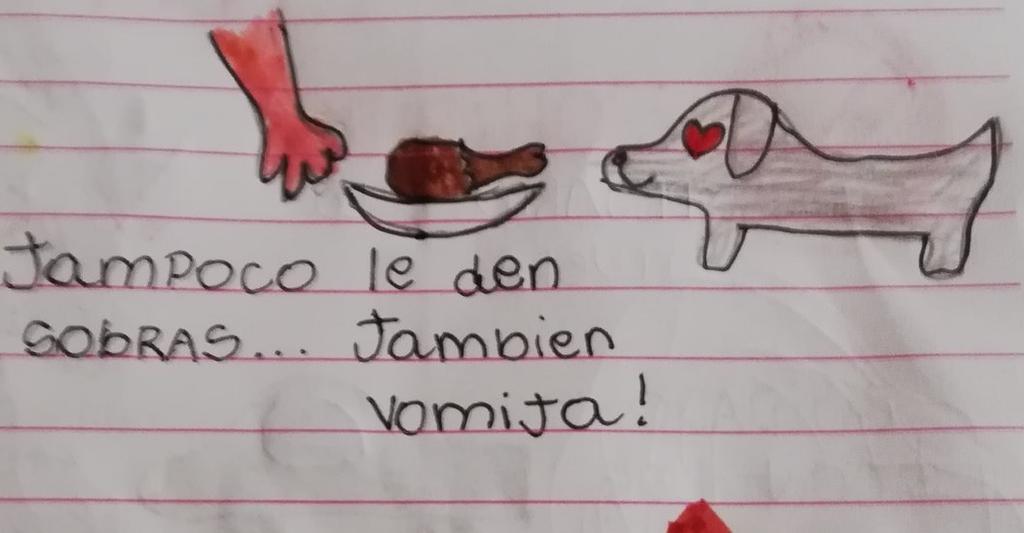 Tampoco le den
SObRAS... Tambien
vomita!